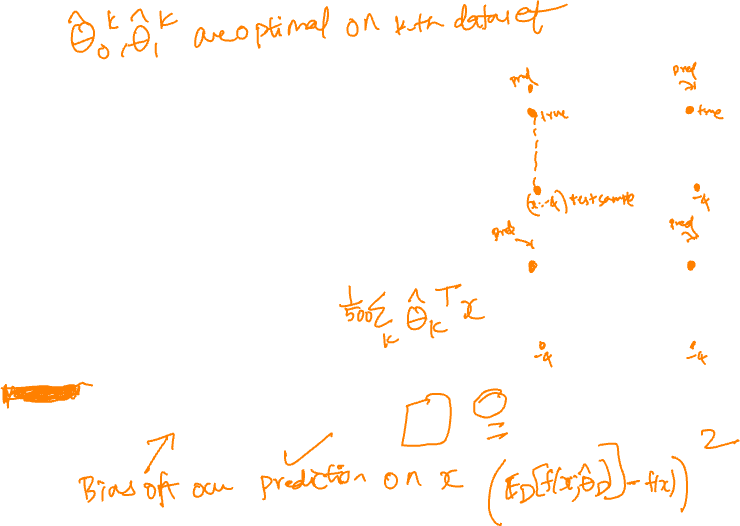 θ̂₀ᵏ, θ̂₁ᵏ are optimal on kth dataset
pred pred
true true
(x=-4) test sample -4
pred pred
1/500 Σₖ θ̂ₖᵀ x
-4 -4
Bias of our prediction on x (E_D[f(x; θ̂_D)] - f(x))²